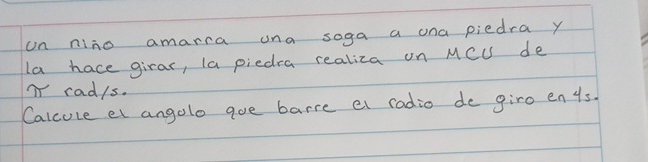 un niño amarra una soga a una piedra y
la hace girar, la piedra realiza un MCU de
π rad/s.
Calcule el angulo que barre el radio de giro en 4s.